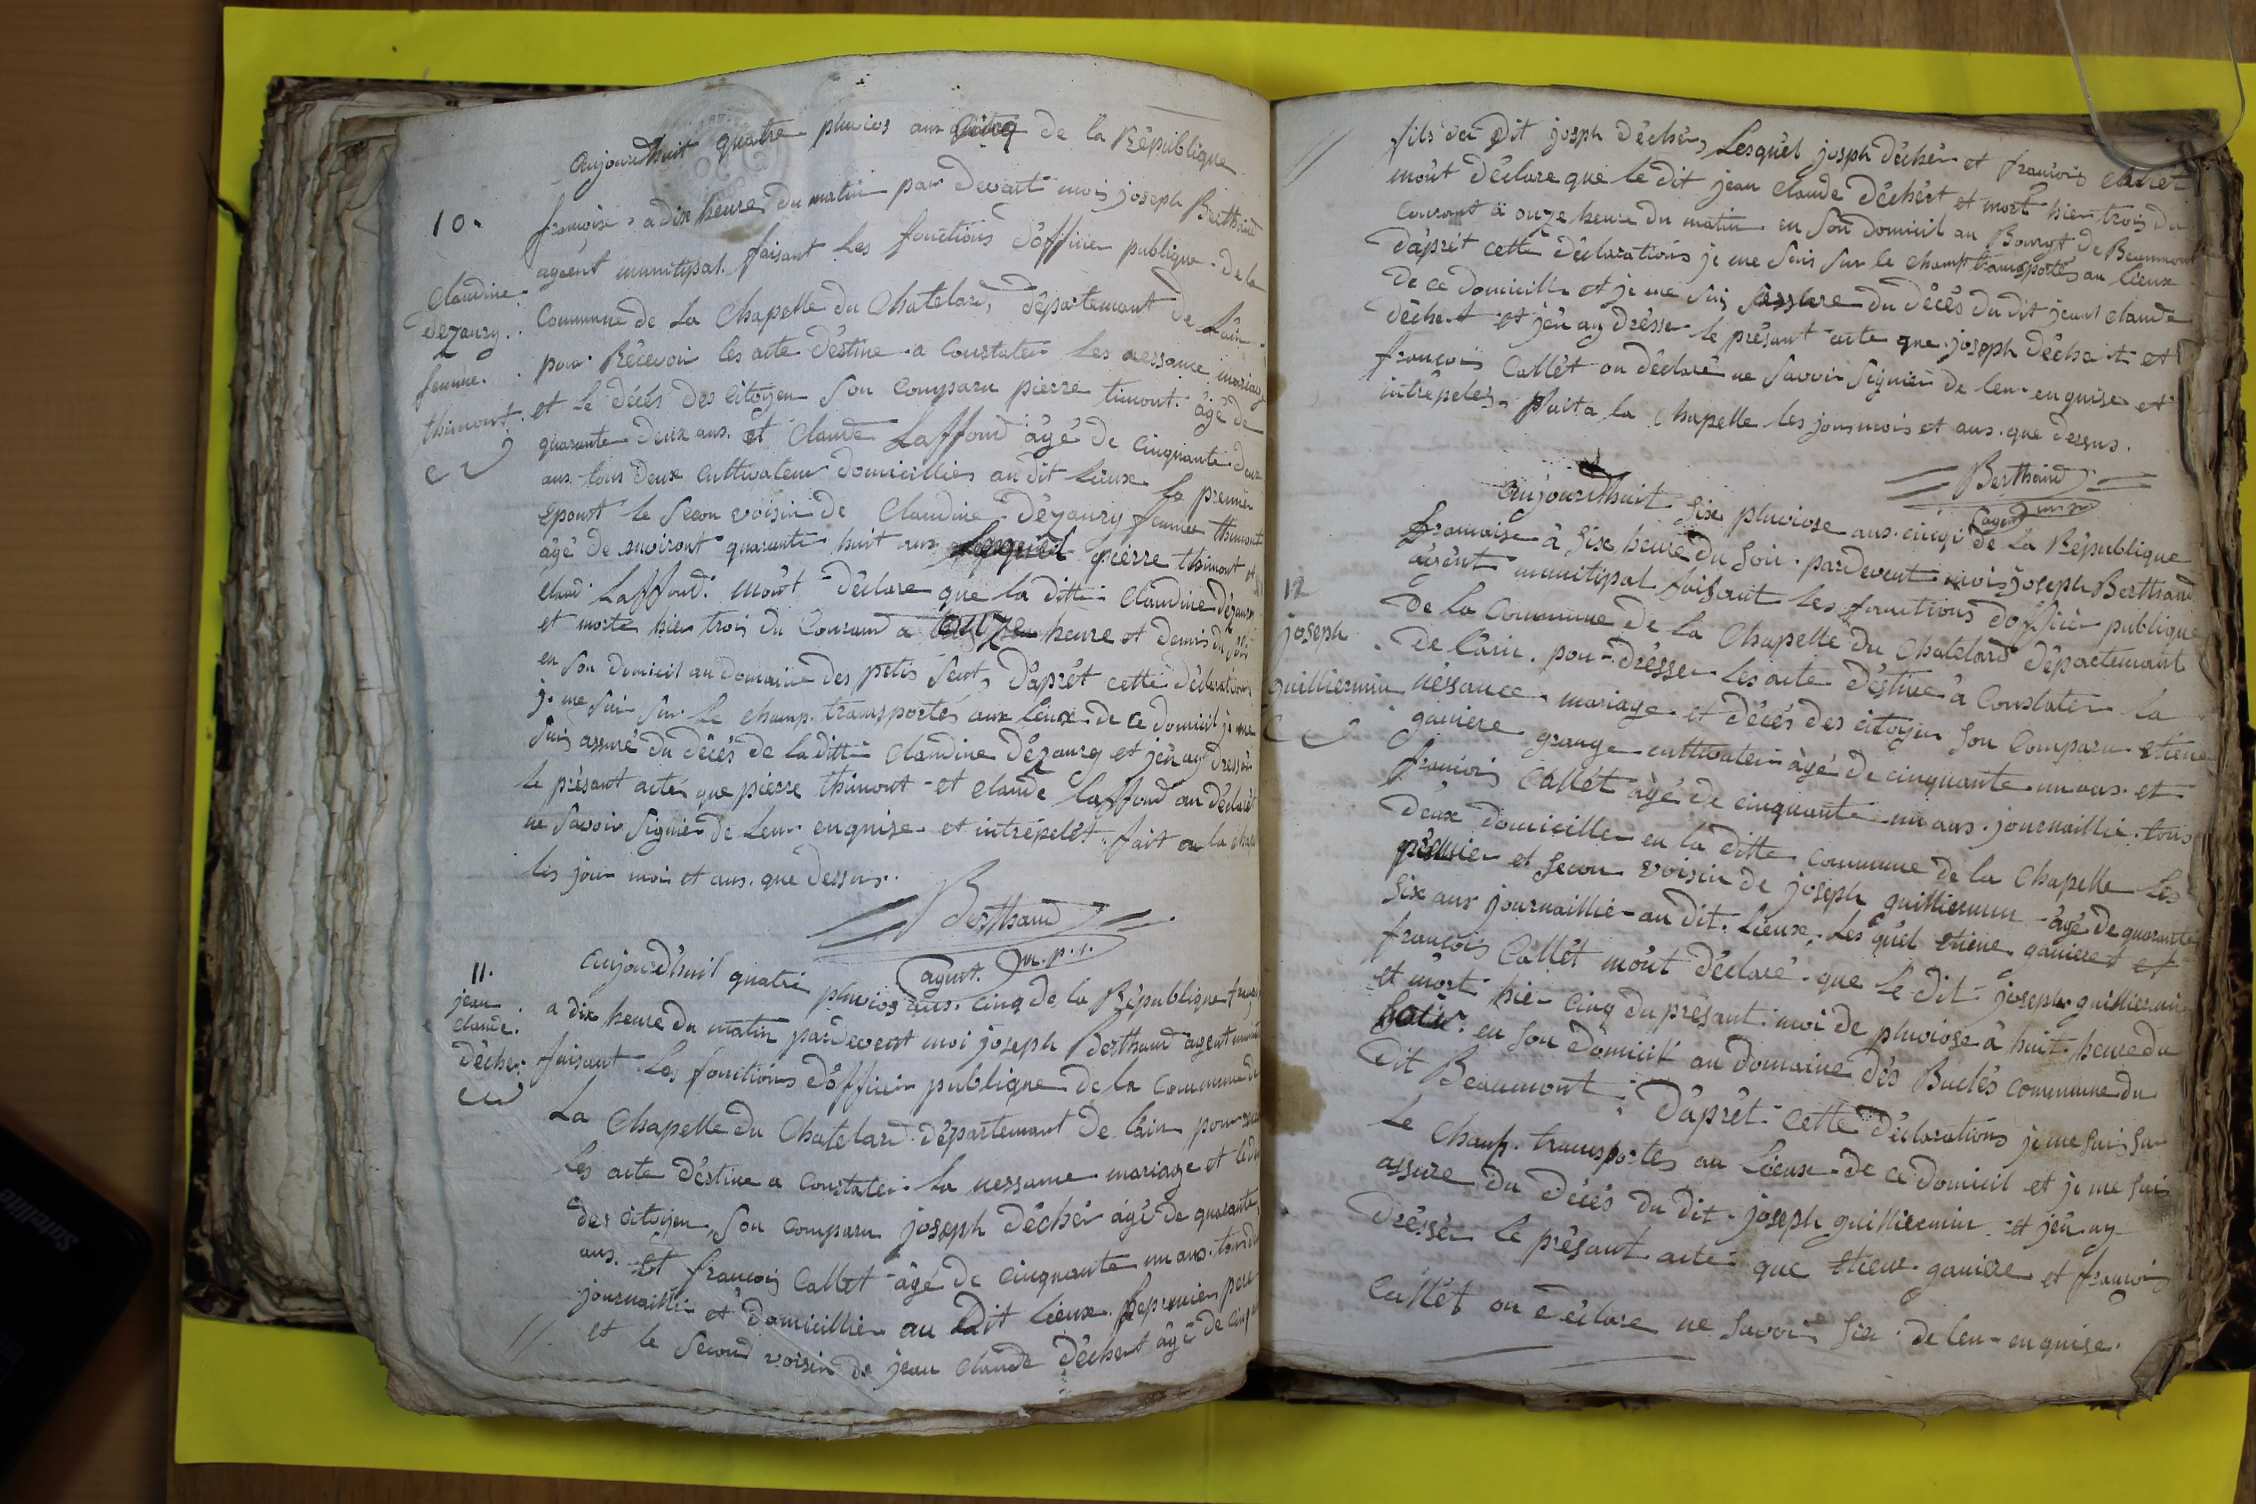 aujourdhuit quatre pluvios ans cinq de la République
10.
françoise, a dix heure du matin par devant moi joseph Berthaud
agaent munitipal faisant les fonctions dofficier publique de la
Claudine
dezaury
femme
thimont
Commune de La Chapelle du Chatelard, département de Lain
pour Récevoir les acte déstine a Constater les nessance mariage
et le décés des Citoyen Son Comparu pierre timont âgé de
quarante deux ans. et Claude Laffond âgé de cinquante deux
ans tous deux cultivateur domicilliés au dit lieux le premier
Epoust le secon voisin de Claudine dézaury femme thimont
âgé de environt quarante huit ans pierre thimont et
Claude Laffond mont déclare que la ditte Claudine dézaury
et morte hier trois du Courand a onze heure et demis du soir
en son domicil au domaine des petis daprét cette déclarations
je me suis sur le champ transportés aux lieux de ce domicil je me
suis assuré du décés de la ditte Claudine dézaurey et jén ay dressér
le présant acte que pierre thimont et Claude Laffond on déclaré
ne savoir signier de leur enquise et intrépelét fait a la chapelle
les jour mois et ans que dessus.
Berthaud
agent m.p.l.
11.
jean
claude
décher
aujourdhuil quatre pluvios ans cinq de la République
a dix heure du matin pardevent moi joseph Berthaud agent
faisant les fonctions dofficier publique de la Commune de
La Chapelle du Chatelard département de lain pour
les acte déstine a Constater la nessanse mariage et
des citoyen, Son comparu joseph décher âgé de quarante
ans et francois Callet âgé de cinquante un ans
journaillier et domicillier au dit lieux le premier pere
et le second voisin de jean claude déchert âgé de cinq
fils du dit josph décher, Lesquél josph décher et francois Callet
mont déclare que le dit jean claude déchért et mort hier trois du
Courant a onze heure du matin en son domicil au Bourgt de Beaumont
daprét cette déclarations je me suis sur le champ transportés au lieux
de ce domicille et je me suis du décés du dit jean claude
déchert et jén ay drésser le présant acte que joseph déchert et
francois Callét on déclaré ne savoir signier de leur enquise et
intrépelés. fait a la Chapelle les jour mois et ans que dessus.
Berthaud
agent
12
joseph
guilliermin
aujourdhuit six pluviose ans cinq de la République
francaise à six heure du soir pardevent moi joseph Berthaud
agént munitipal faisant les fonctions dofficier publique
de la Commune de La Chapelle du Chatelard départemant
de lain pour drésser les acte déstine à Constater la
néssance mariage et décés des citoyen son Comparu etiene
ganiere grange cultivateur âgé de cinquante un ans et
francois Callét âgé de cinquante un ans journaillier tous
deux domicille en la ditte Commune de la Chapelle Les
premier et secon voisin de joseph guilliermin âgé de quarante
six ans journaillie au dit lieux. Lesquél etiene ganiere et
francois Callét mont déclaré que le dit joseph guilliermin
et mort hier cinq du présant moi de pluviose à huit heure du
soir en son domicil au domaine dés Buclés commune du
dit Beaumont. Daprét cette déclarations je me suis sur
Le champ transportés au lieux de ce domicil et je me suis
assure du décés du dit joseph guilliermin et jén ay
drésser le présant acte que etiene ganiere et francois
Callét on déclare ne savoir six de leur enquise.